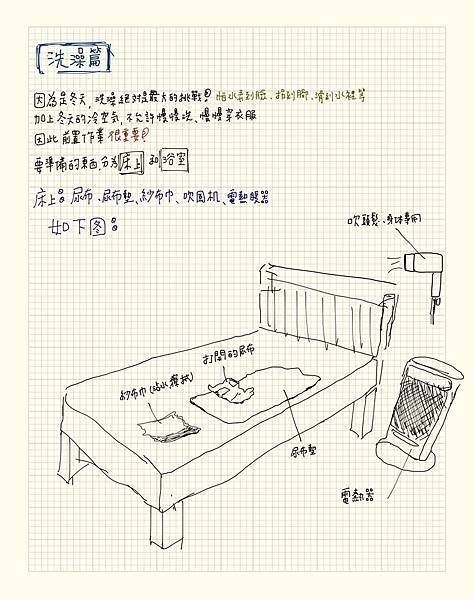 洗澡篇
因為是冬天,洗澡絕對是最大的挑戰!怕水柔到臉、招到腳、滑到水裡等
加上冬天的冷空氣,不允許慢慢洗、慢慢穿衣服
因此前置作業很重要!
要準備的東西,分為床上和浴室
床上:尿布、尿布墊、紗布巾、吹風机、電熱暖器
如下图:
吹頭髮、身体專用
打開的尿布
紗布巾(沾水擦拭)
尿布墊
電熱器